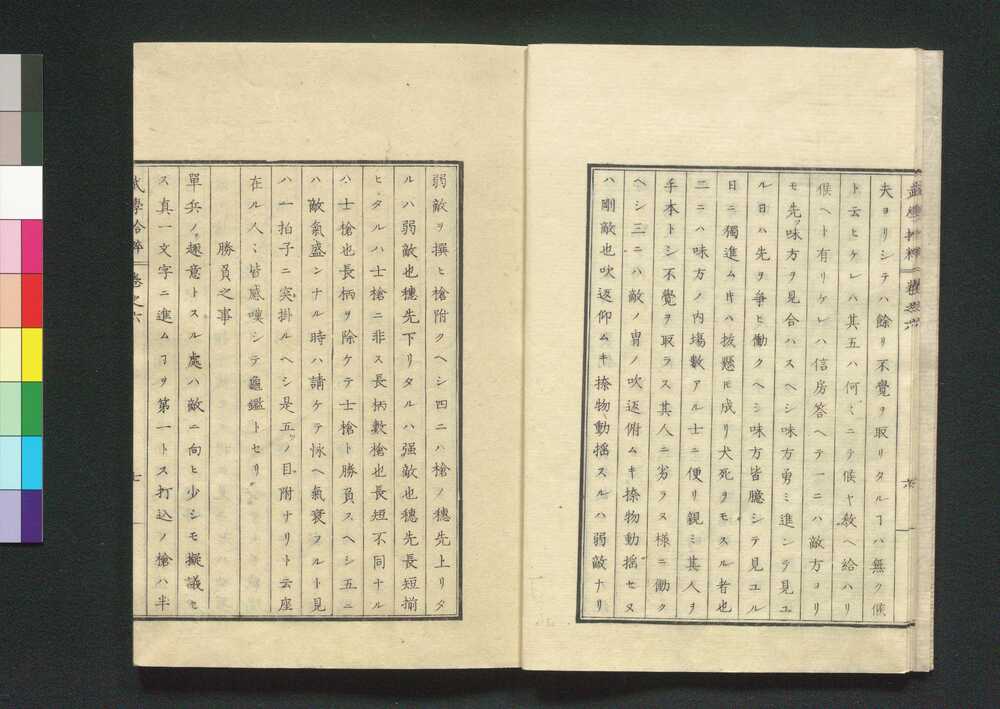 夫ヨリシテハ餘リ不覺ヲ取リタルヿハ無ク候
ト云ヒケレハ其五ハ何〻ニテ候ヤ教ヘ給ハリ
候ヘト有リケレハ信房答ヘテ一ニハ敵方ヨリ
モ先ッ味方ヲ見合ハスヘシ味方勇ミ進ンテ見ユ
ル日ハ先ヲ爭ヒ働クヘシ味方皆臆シテ見ユル
日ニ獨進ムキハ拔懸ㇳモ成リ犬死ヲモスル者也
二ニハ味方ノ内塲數アル士ニ便リ親ミ其人ヲ
手本トシ不覺ヲ取ラス其人ニ劣ラヌ様ニ働ク
ヘシ三ニハ敵ノ冑ノ吹返俯ムキ捺物動揺セヌ
ハ剛敵也吹返仰ムキ捺物動揺スルハ弱敵ナリ
六
弱敵ヲ撰ヒ槍附クヘシ四ニハ槍ノ穗先上リタ
ルハ弱敵也穗先下リタルハ强敵也穗先長短揃
ヒタルハ士槍ニ非ス長柄數槍也長短不同ナル
ハ士槍也長柄ヲ除ケテ士槍ト勝負スヘシ五ニ
ハ敵氣盛ンナル時ハ請ケテ怺ヘ氣衰フルト見
ハ一拍子ニ突掛ルヘシ是五ッノ目附ナリト云座
在ル人〻皆感嘆シテ龜鑑トセリ
勝負之事
單兵ノ趣意トスル處ハ敵ニ向ヒ少シモ擬議セ
ス真一文字ニ進ムヿヲ第一トス打込ノ槍ハ半
武學拾粹 卷之六
七